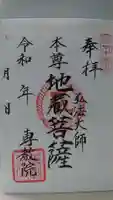 奉拝
弘法大師
本尊 地蔵菩薩
令和 年 月 日
専教院